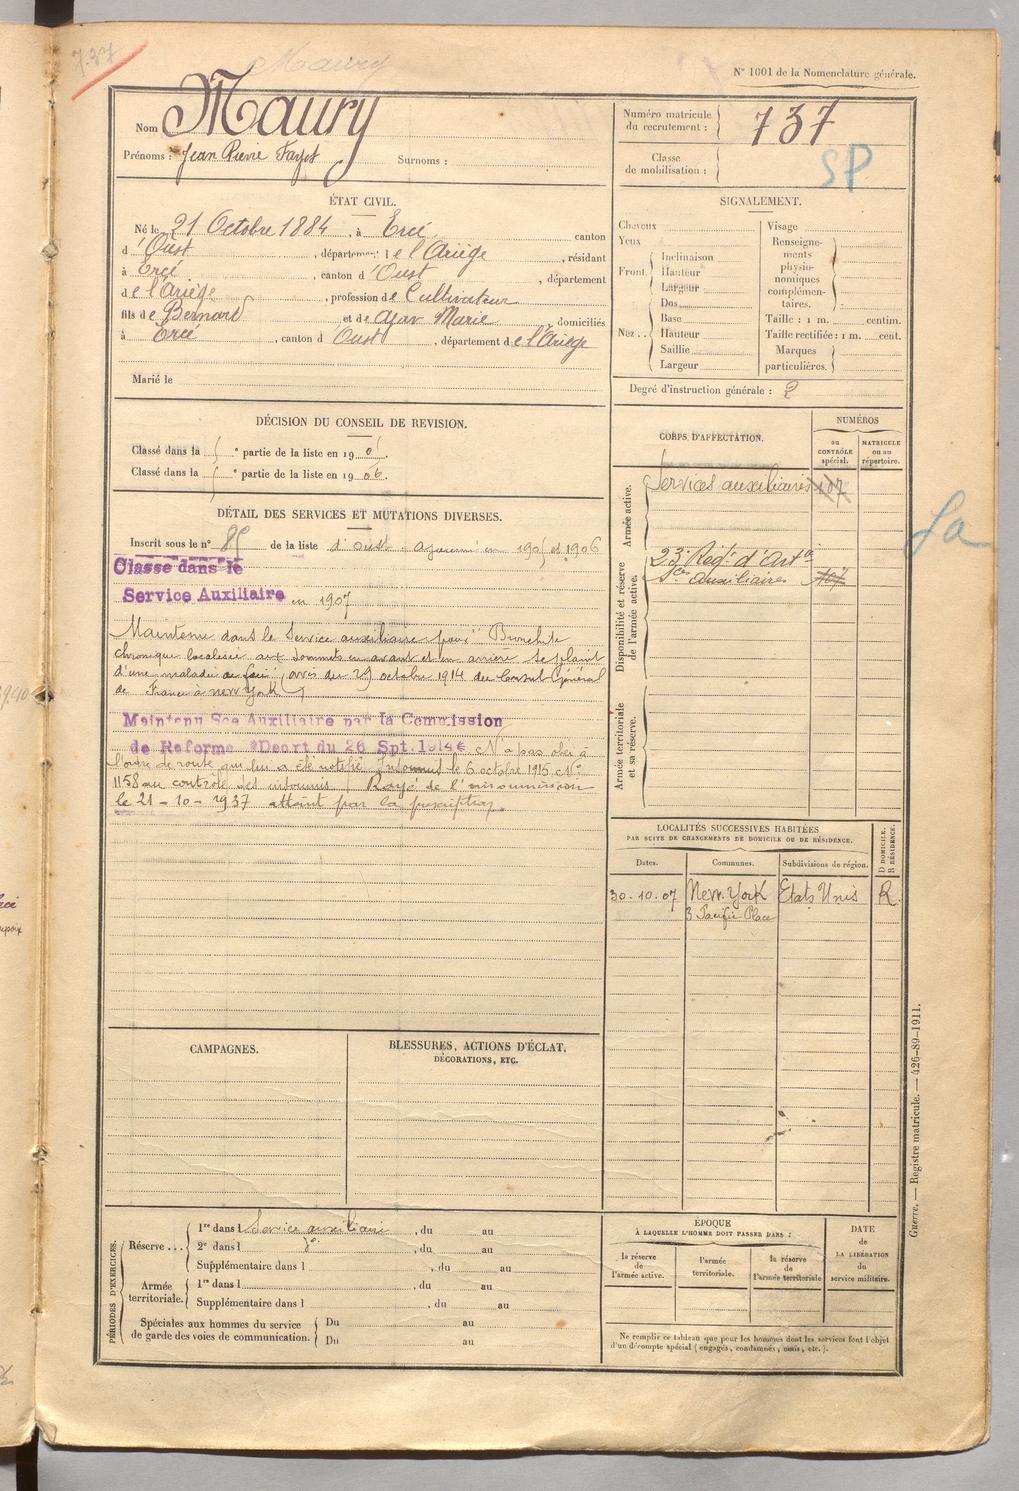 737
Maury
N° 1601 de la Nomenclature générale.
Nom Maury
Prénoms : Jean Pierre Fayet Surnoms :
Numéro matricule du recrutement : 737
Classe de mobilisation :
SP
ÉTAT CIVIL.
Né le 21 Octobre 1884, à Ercé canton
d'Oust, département de l'Ariège, résidant
à Ercé, canton d'Oust, département
de l'Ariège, profession de Cultivateur
fils de Bernard et de Ajav Marie domiciliés
à Ercé, canton d Oust, département de l'Ariège
Marié le
SIGNALEMENT.
Cheveux
Yeux
Front. Inclinaison
Hauteur
Largeur
Nez.. Dos
Base
Hauteur
Saillie
Largeur
Visage
Renseignements physionomiques complémentaires.
Taille : 1 m. centim.
Taille rectifiée : 1 m. cent.
Marques particulières.
Degré d'instruction générale : 2
DÉCISION DU CONSEIL DE REVISION.
Classé dans la 5e partie de la liste en 190
Classé dans la 5e partie de la liste en 1906.
DÉTAIL DES SERVICES ET MUTATIONS DIVERSES.
Inscrit sous le n° 85 de la liste d'oust. ajourné en 1905 et 1906
Classe dans le
Service Auxiliaire en 1907
Maintenu dans le Service auxiliaire pour "Bronchite
chronique localisée aux sommets en avant et en arrière se plaint
d'une maladie de foie (avis du 29 octobre 1914 du Consul Général
de France à New York)
Maintenu Sce Auxiliaire par la Commission
de Réforme *Decrt du 26 Spt. 1914* N'a pas obéi à
l'ordre de route qui lui a été notifié. Insoumis le 6 octobre 1915 N°
1158 au contrôle des insoumis. Rayé de l'insoumission
le 21-10-1937 atteint par la prescription.
CORPS D'AFFECTATION.
NUMÉROS
au CONTRÔLE spécial.
MATRICULE ou au répertoire.
Armée active.
Services auxiliaires 107
Disponibilité et réserve de l'armée active.
23e Régt d'Artie
Sces auxiliaires 107
Armée territoriale et sa réserve.
La
LOCALITÉS SUCCESSIVES HABITÉES
PAR SUITE DE CHANGEMENTS DE DOMICILE OU DE RÉSIDENCE.
Dates. Communes. Subdivisions de région. D DOMICILE. R RÉSIDENCE.
30-10-07 New-York Etats Unis R.
3 Pacific Place
CAMPAGNES.
BLESSURES, ACTIONS D'ÉCLAT,
DÉCORATIONS, ETC.
PÉRIODES D'EXERCICES.
Réserve... 1re dans l Service auxiliaire, du au
2e dans l do, du au
Supplémentaire dans l, du au
Armée territoriale. 1re dans l, du au
Supplémentaire dans l, du au
Spéciales aux hommes du service
de garde des voies de communication.
Du au
Du au
ÉPOQUE
À LAQUELLE L'HOMME DOIT PASSER DANS :
la réserve de l'armée active.
l'armée territoriale.
la réserve de l'armée territoriale
DATE de LA LIBÉRATION du service militaire.
Ne remplir ce tableau que pour les hommes dont les services font l'objet
d'un décompte spécial (engagés, condamnés, omis, etc.).
Guerre. — Registre matricule. — 426-89-1911.